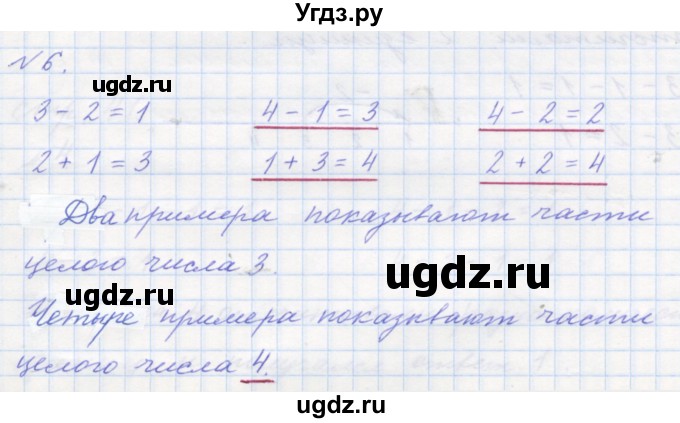 Угдз.ру
№ 6.
ugdz.ru
3 - 2 = 1 4 - 1 = 3 4 - 2 = 2
2 + 1 = 3 1 + 3 = 4 2 + 2 = 4
ugdz.ru ugdz.ru ugdz.ru
Два примера показывают части
целого числа 3.
ugdz.ru ugdz.ru
Четыре примера показывают части
целого числа 4.
ugdz.ru
ugdz.ru